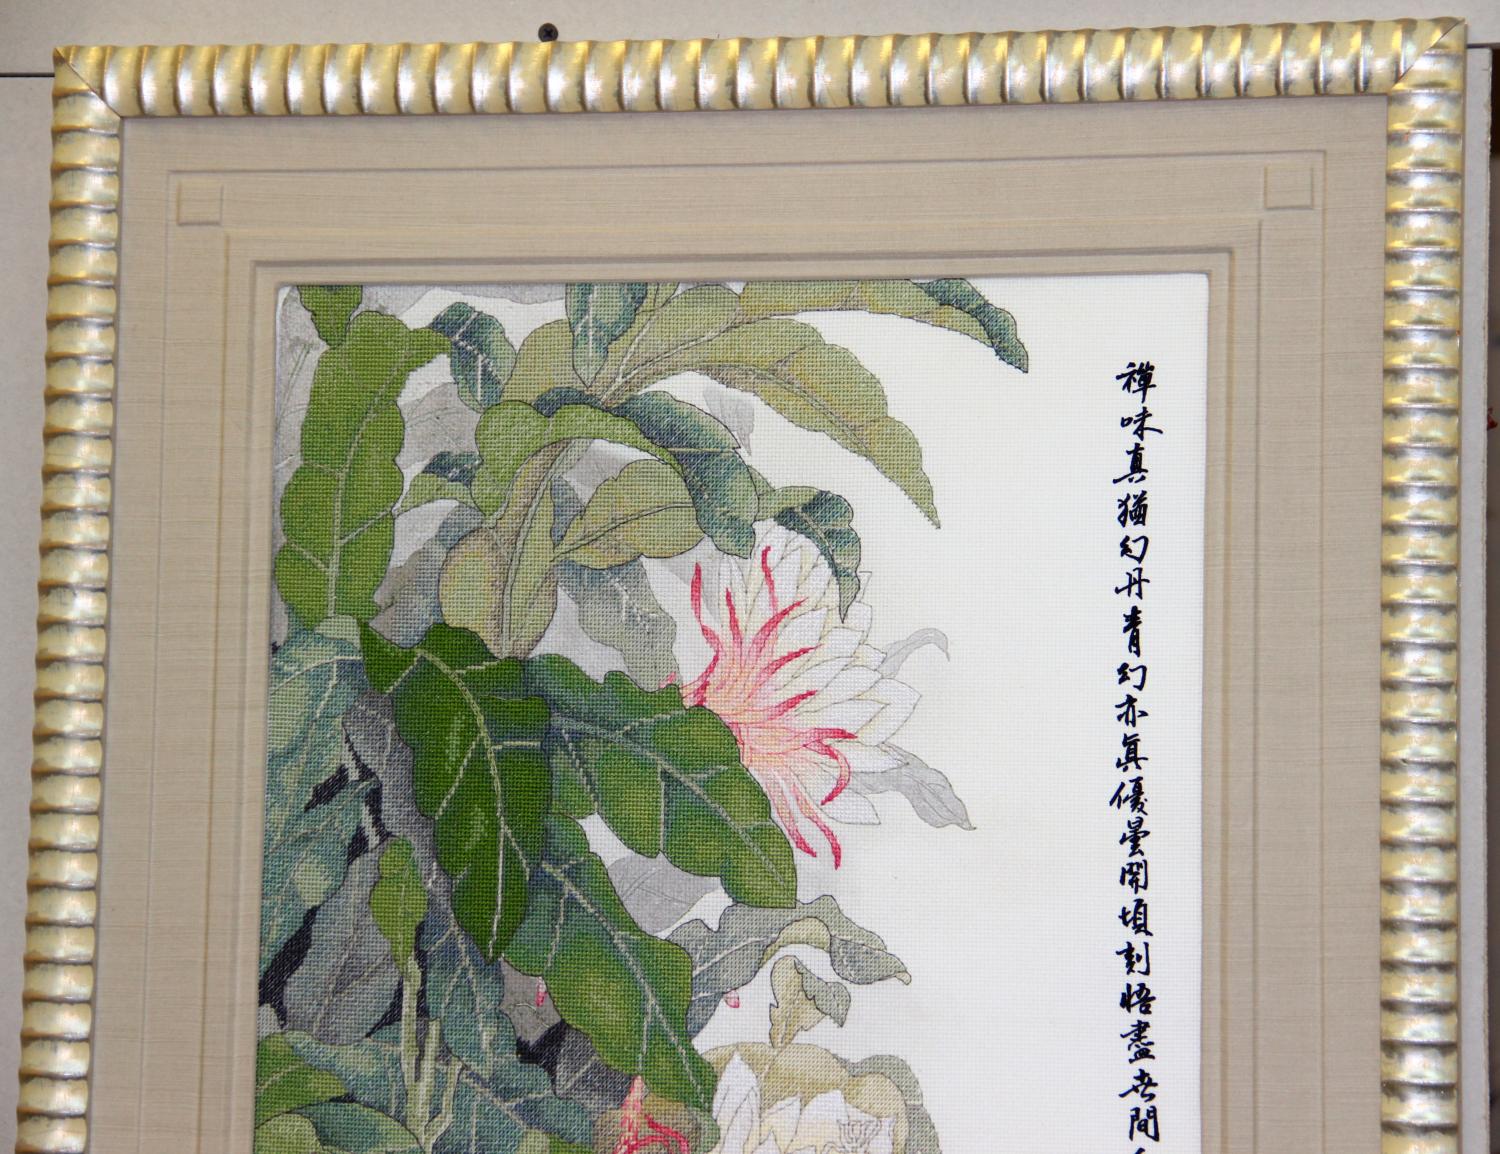 禪味真猶幻丹青幻亦眞優曇開頃刻悟盡世間